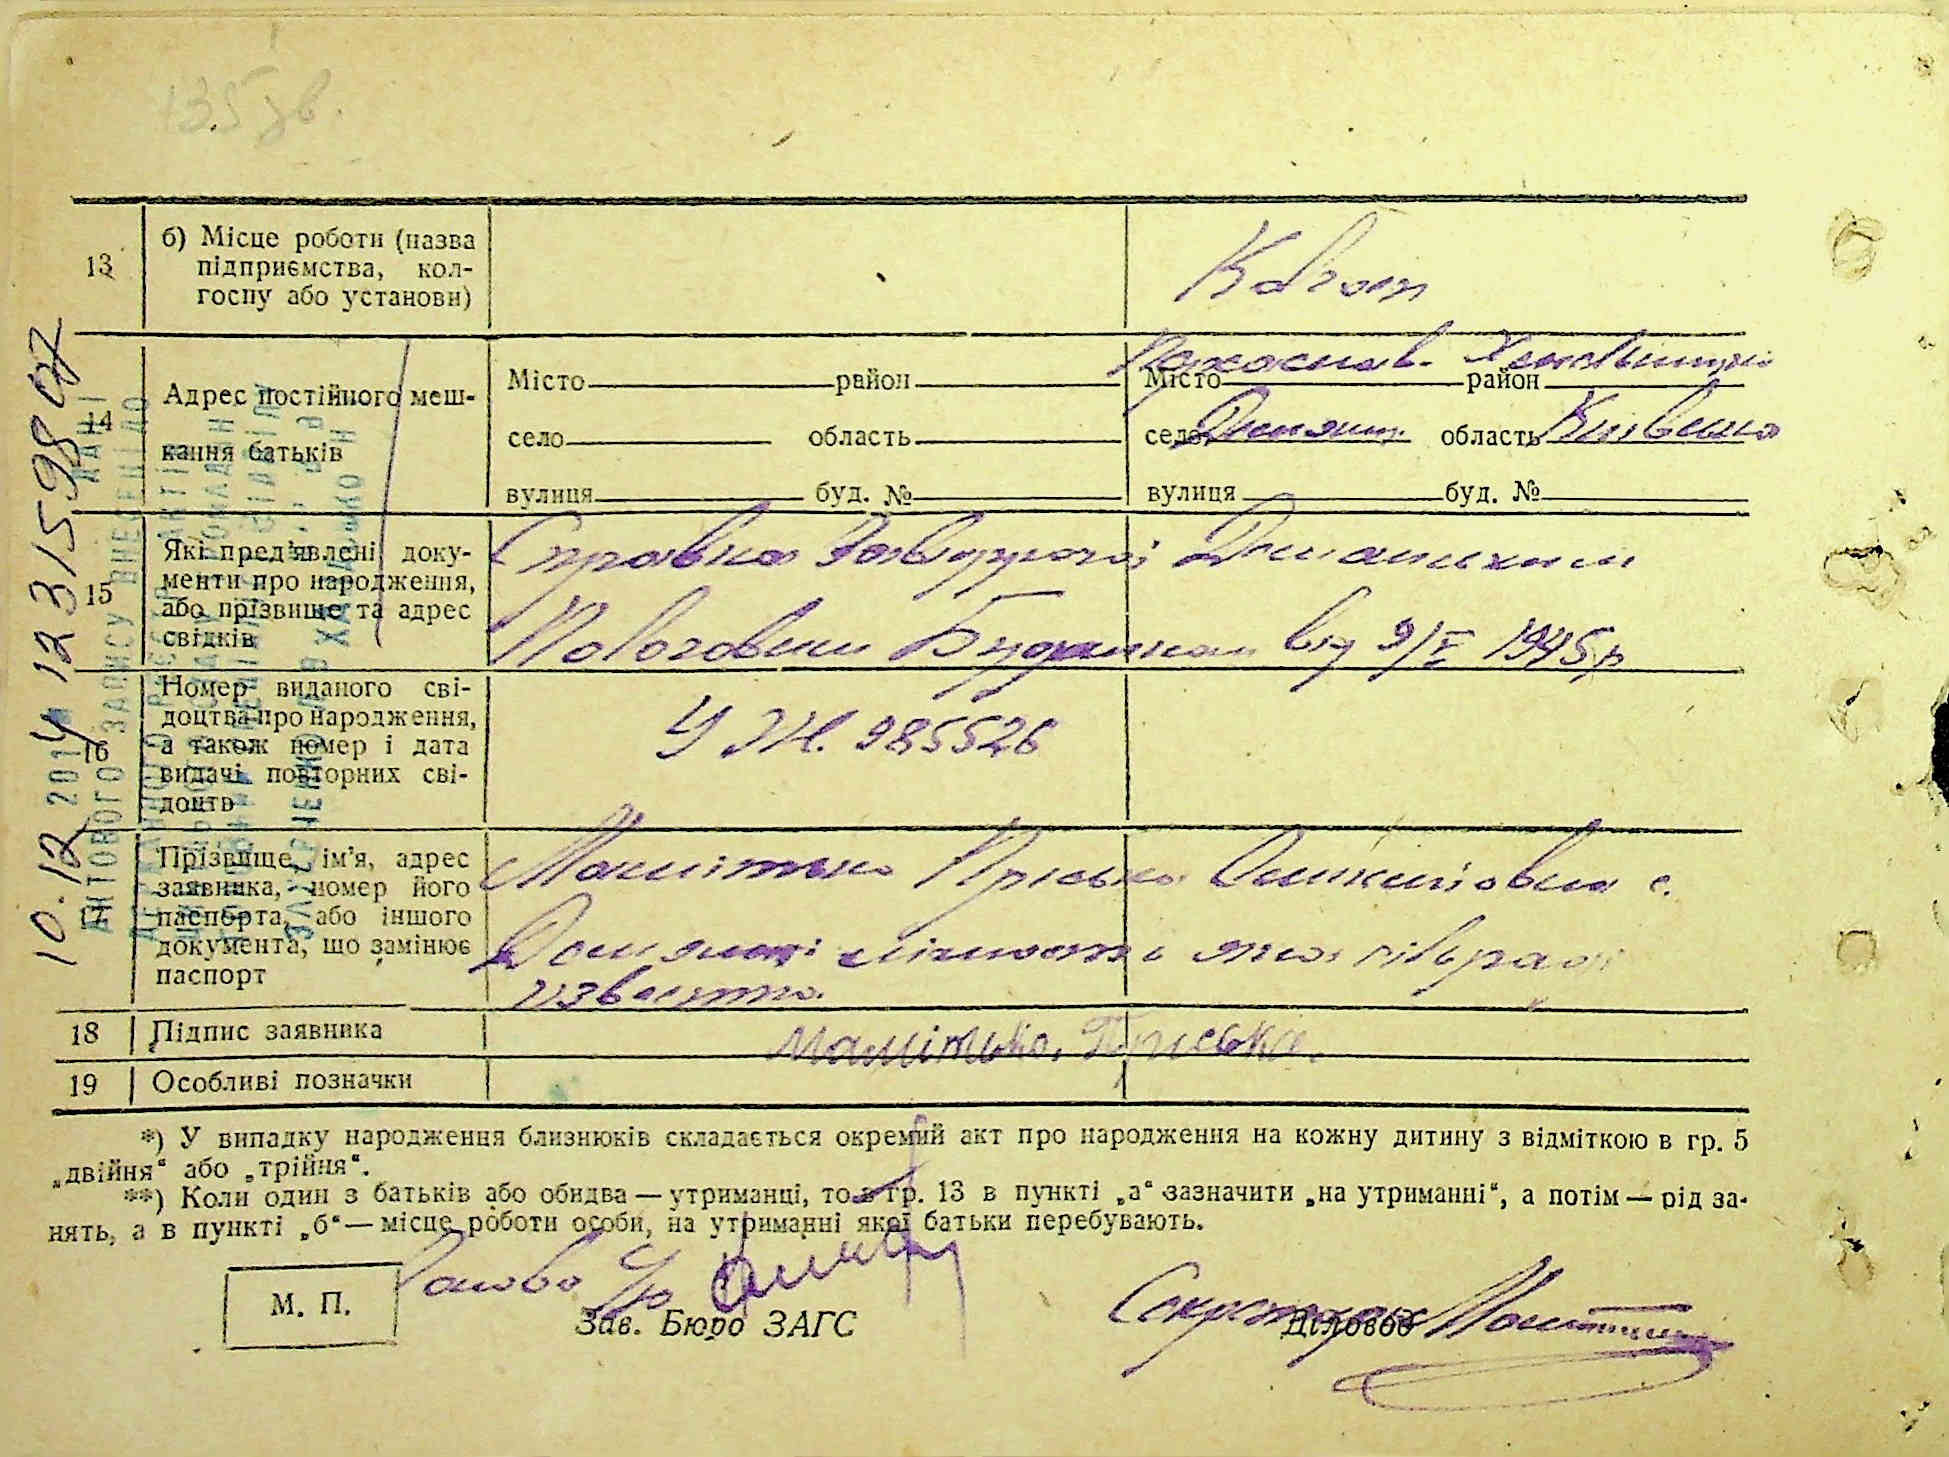 135 зв.
13 б) Місце роботи (назва
підприємства, кол-
госпу або установи)
Колгосп
14 Адрес постійного меш-
кання батьків
Місто район
село область
вулиця буд. №
Переяслав- Хмельницький
Місто район
село область Київська
вулиця буд. №
15 Які пред'явлені доку-
менти про народження,
або прізвище та адрес
свідків
Справка Завідуючої
Пологовим Будинком від 9/V 1945 р
16 Номер виданого сві-
доцтва про народження,
а також номер і дата
видачі повторних сві-
доцтв
У ЭЖ. 985526
17 Прізвище, ім'я, адрес
заявника, номер його
паспорта, або іншого
документа, що замінює
паспорт
Мамітько Пріська с.
личность
известна.
18 Підпис заявника
Мамітько, Пріська.
19 Особливі позначки
*) У випадку народження близнюків складається окремий акт про народження на кожну дитину з відміткою в гр. 5
„двійня“ або „трійня“.
**) Коли один з батьків або обидва — утриманці, то в гр. 13 в пункті „а“ зазначити „на утриманні“, а потім — рід за-
нять, а в пункті „б“ — місце роботи особи, на утриманні якої батьки перебувають.
М. П.
Голова
Зав. Бюро ЗАГС
Секретарь
Діловод
10.12.2014 1231598 07